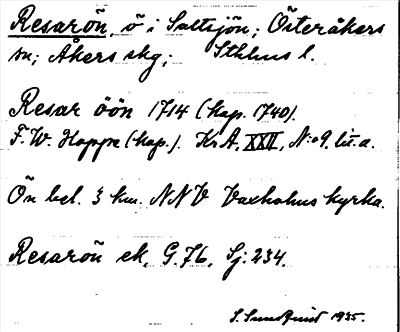 Resarön, ö i Saltsjön; Österåkers
sn; Åkers skg; Sthlms l.
Resar öön 1714 (kap. 1740).
F. W. Hoppe (kap.). KrA, XXII, N:o 9, lit. a.
Ön bel. 3 km. NNV Vaxholms kyrka.
Resarön ek, G.76, Sj: 234.
S. Sundquist 1935.